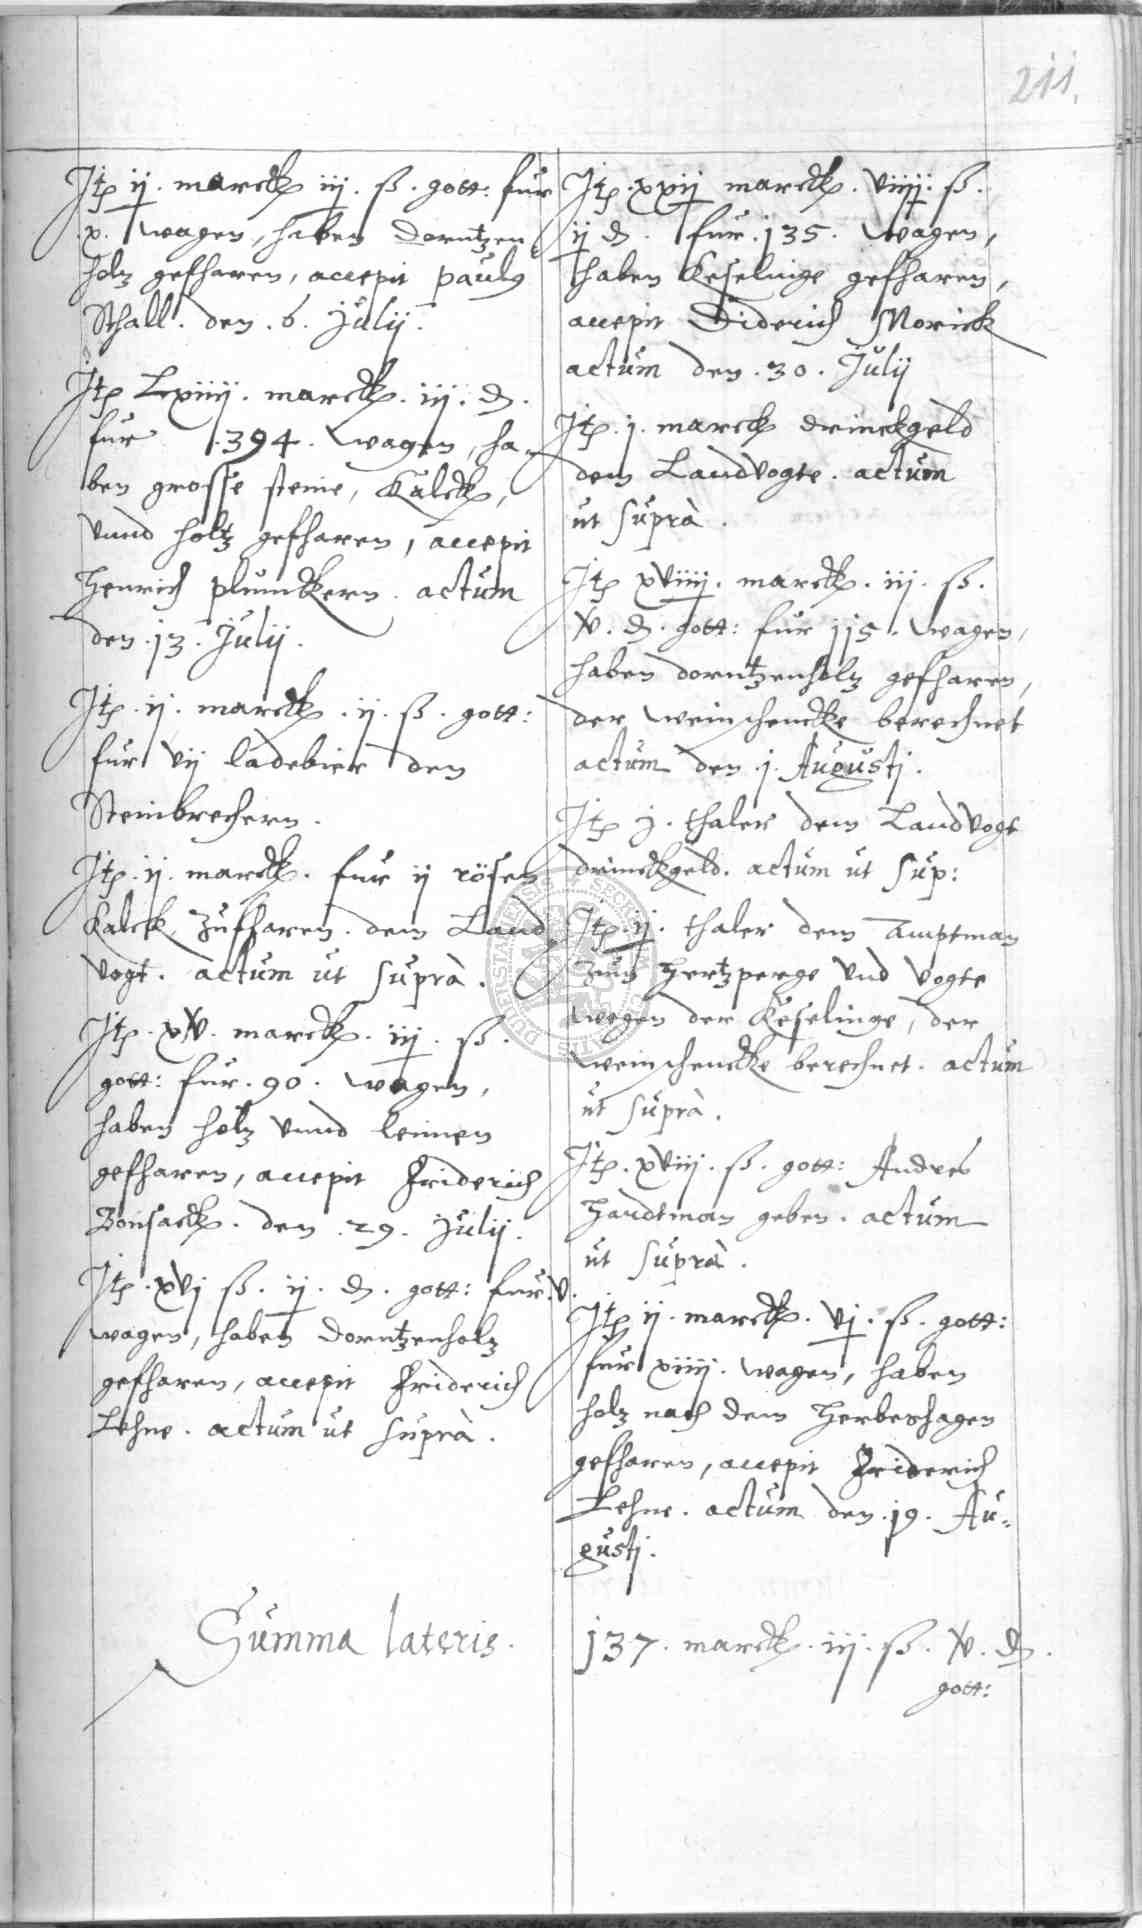 211.
Itz ij. marck iij. ß. gott: fur
x. wagen, haben dorntzen
holz gefharen, accepit pauly
Schall. den .6. Julij.
Itz Lxiiij. marck. iij. d.
fur .394. wagen, ha-
ben grosse steine, Kalck,
vnnd holtz gefharen, accepit
Henrich plunckern. actum
den .13. Julij.
Itz .ij. marck .ij. ß. gott:
fur vij ladebier den
Steinbrechern.
Itz .ij. marck. fur ij rösen
Kalck zufharen. dem Land
vogt. actum ut suprà.
Itz. xv. marck. iij. ß.
gott: fur .90. wagen,
haben holz vnnd leimen
gefharen, accepit Friderich
Bonsack. den .29. Julij.
Itz. xvj ß. ij. d. gott: fur .v.
wagen, haben dorntzenholz
gefharen, accepit Friderich
Lehne. actum ut suprà.
Itz. xxij marck. viiij. ß.
ij d. fur .135. wagen,
haben Keselinge gefharen,
accepit Diderich Morick
actum den .30. Julij
Itz. j. marck drinckgeld
dem Landvogte. actum
ut suprà.
Itz xviiij. marck. iij. ß.
v. d. gott: fur 115. wagen,
haben dorntzenholz gefharen,
der weinschencke berechnet
actum den .j. Augustj.
Itz j. thaler dem Landvogt
drinckgeld. actum ut sup:
Itz .ij. thaler dem Amptman
zum Hertzperge vnd vogte
wegen der Keselinge, der
weinschencke berechnet. actum
ut suprà.
Itz. xviij. ß. gott: Andres
Handtman geben. actum
ut suprà.
Itz ij. marck. vj. ß. gott:
fur xiiij. wagen, haben
holz nach dem Herbeshagen
gefharen, accepit Friderich
Lehne. actum den .19. Au-
gustj.
Summa lateris. 137. marck. iij. ß. v. d.
gott: